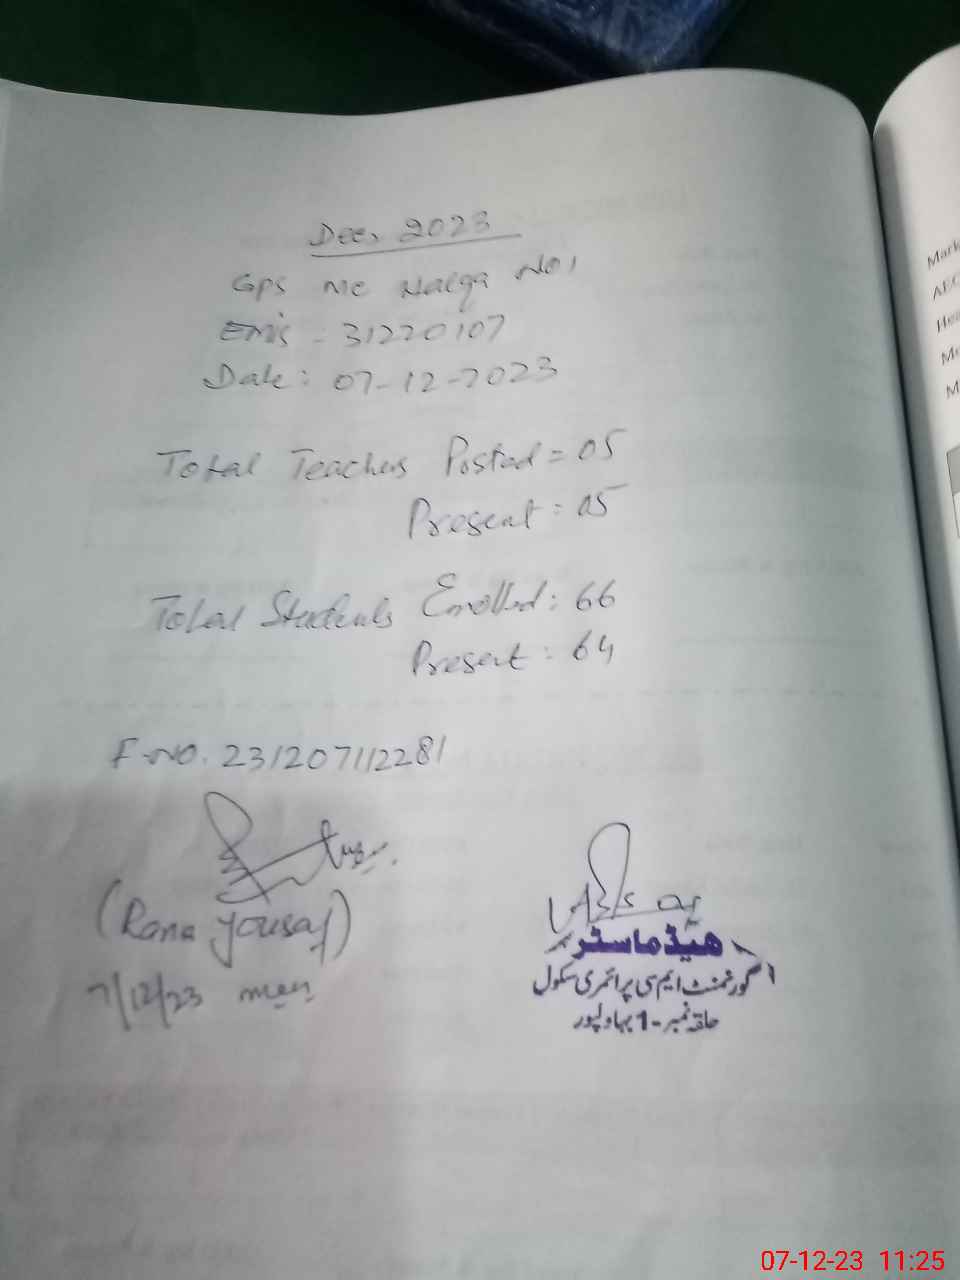 Dec, 2023
GPS MC Halqa No 1
EMIS - 31220107
Date: 07-12-2023
Total Teachers Posted = 05
Present = 05
Total Students Enrolled: 66
Present: 64
F-NO. 231207112281
(Rana Yousaf)
7/12/23
ھیڈ ماسٹر
گورنمنٹ ایم سی پرائمری سکول
حلقہ نمبر-1 بہاولپور
Mark
AEO
Hea
M
07-12-23 11:25